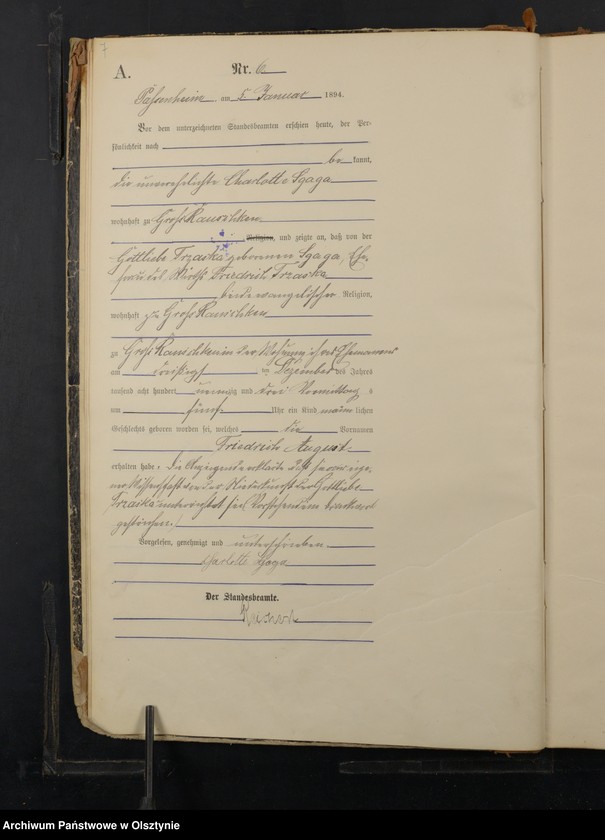 7
A.
Nr. 6
Passenheim am 5. Januar 1894.
Vor dem unterzeichneten Standesbeamten erschien heute, der Per-
sönlichkeit nach
be kannt,
die unverehelichte Charlotte Sgaga
wohnhaft zu Groß Rauschken
Religion, und zeigte an, daß von der
Gottliebe Trzaska geborenen Sgaga, Ehe-
frau des Wirths Friedrich Trzaska
beide evangelischer Religion,
wohnhaft zu Groß Rauschken
zu Groß Rauschken in der Wohnung ihres Ehemannes
am dreißigst en Dezember des Jahres
tausend acht hundert neunzig und drei Vormittag s
um fünf Uhr ein Kind männ lichen
Geschlechts geboren worden sei, welches die Vornamen
Friedrich August
erhalten habe. Die Anzeigende erklärte, daß sie aus eige-
ner Wissenschaft von der Niederkunft der Gottliebe
Trzaska unterrichtet sei. Vorstehend ein Druckwort
gestrichen.
Vorgelesen, genehmigt und unterschrieben
Charlotte Sgaga
Der Standesbeamte.
Archiwum Państwowe w Olsztynie